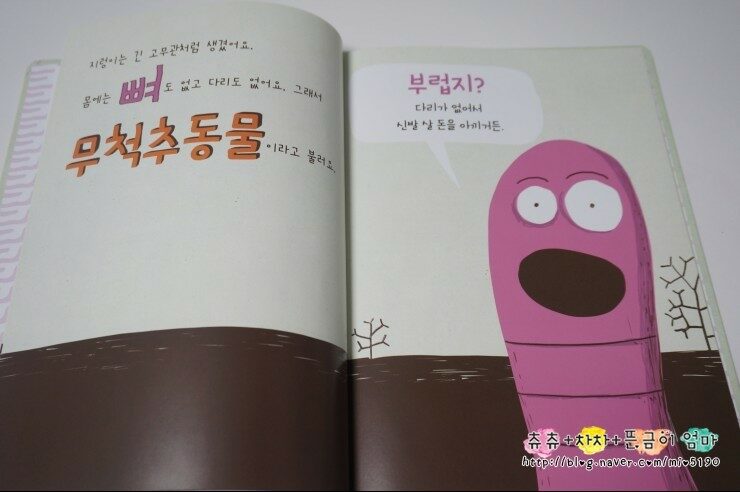 지렁이는 긴 고무관처럼 생겼어요.
몸에는 뼈도 없고 다리도 없어요. 그래서
무척추동물이라고 불러요.
부럽지?
다리가 없어서
신발 살 돈을 아끼거든.
츄츄+차차+뜬금이 엄마
http://blog.naver.com/mio5190